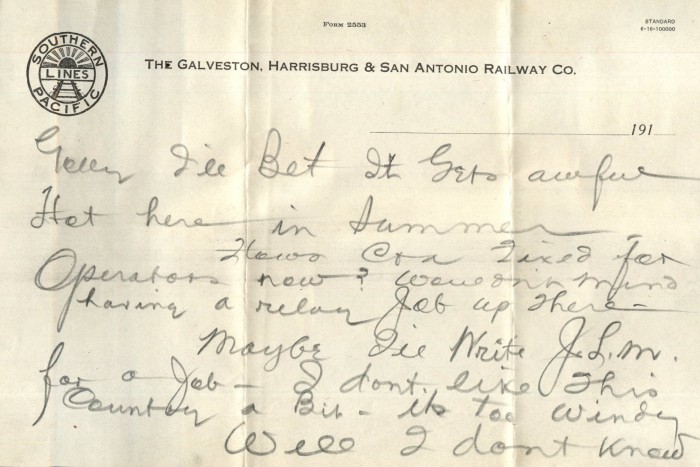 Form 2553
STANDARD
6-16-100000
SOUTHERN
LINES
PACIFIC
THE GALVESTON, HARRISBURG & SAN ANTONIO RAILWAY CO.
191
Golly I'll Bet It Gets awful
Hot here in Summer
Hows Ora Fixed for
Operators now? Wouldnt mind
having a relay Job up there—
Maybe I'll Write J.L.M.
for a Job – I dont like This
Country a Bit – its too windy
Well I dont know